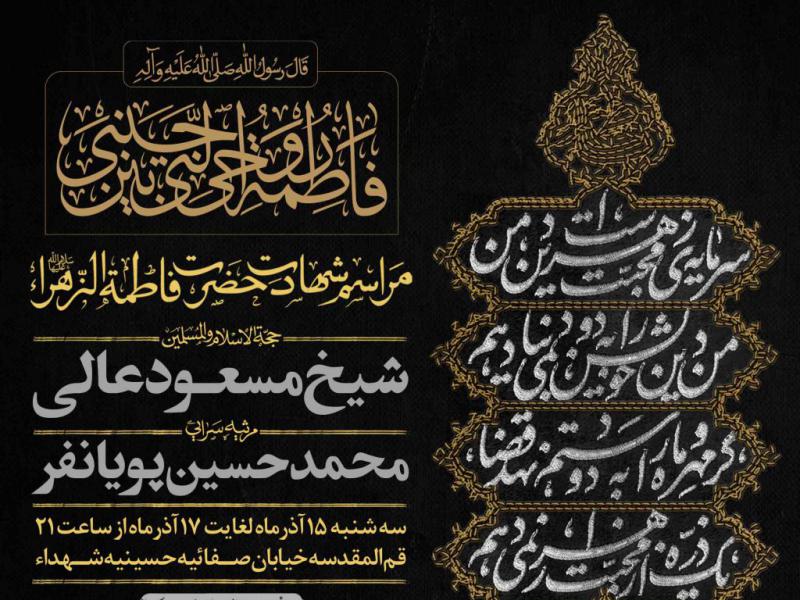 قال رسول الله صلى الله عليه وآله
فاطمة روحي التي بين جنبي
مراسم شهادت حضرت فاطمة الزهراء
حجة الاسلام والمسلمین
شیخ مسعود عالی
مرثیه سرایی
محمد حسین پویانفر
سه شنبه ۱۵ آذر ماه لغایت ۱۷ آذر ماه از ساعت ۲۱
قم المقدسه خیابان صفائیه حسینیه شهداء
سرمایه‌ی محبت زهراست دین من
من دین خویش را به دو دنیا نمی دهم
گر مهر و ماه را به دو دستم نهد قضا
یک ذره از محبت زهرا نمی دهم